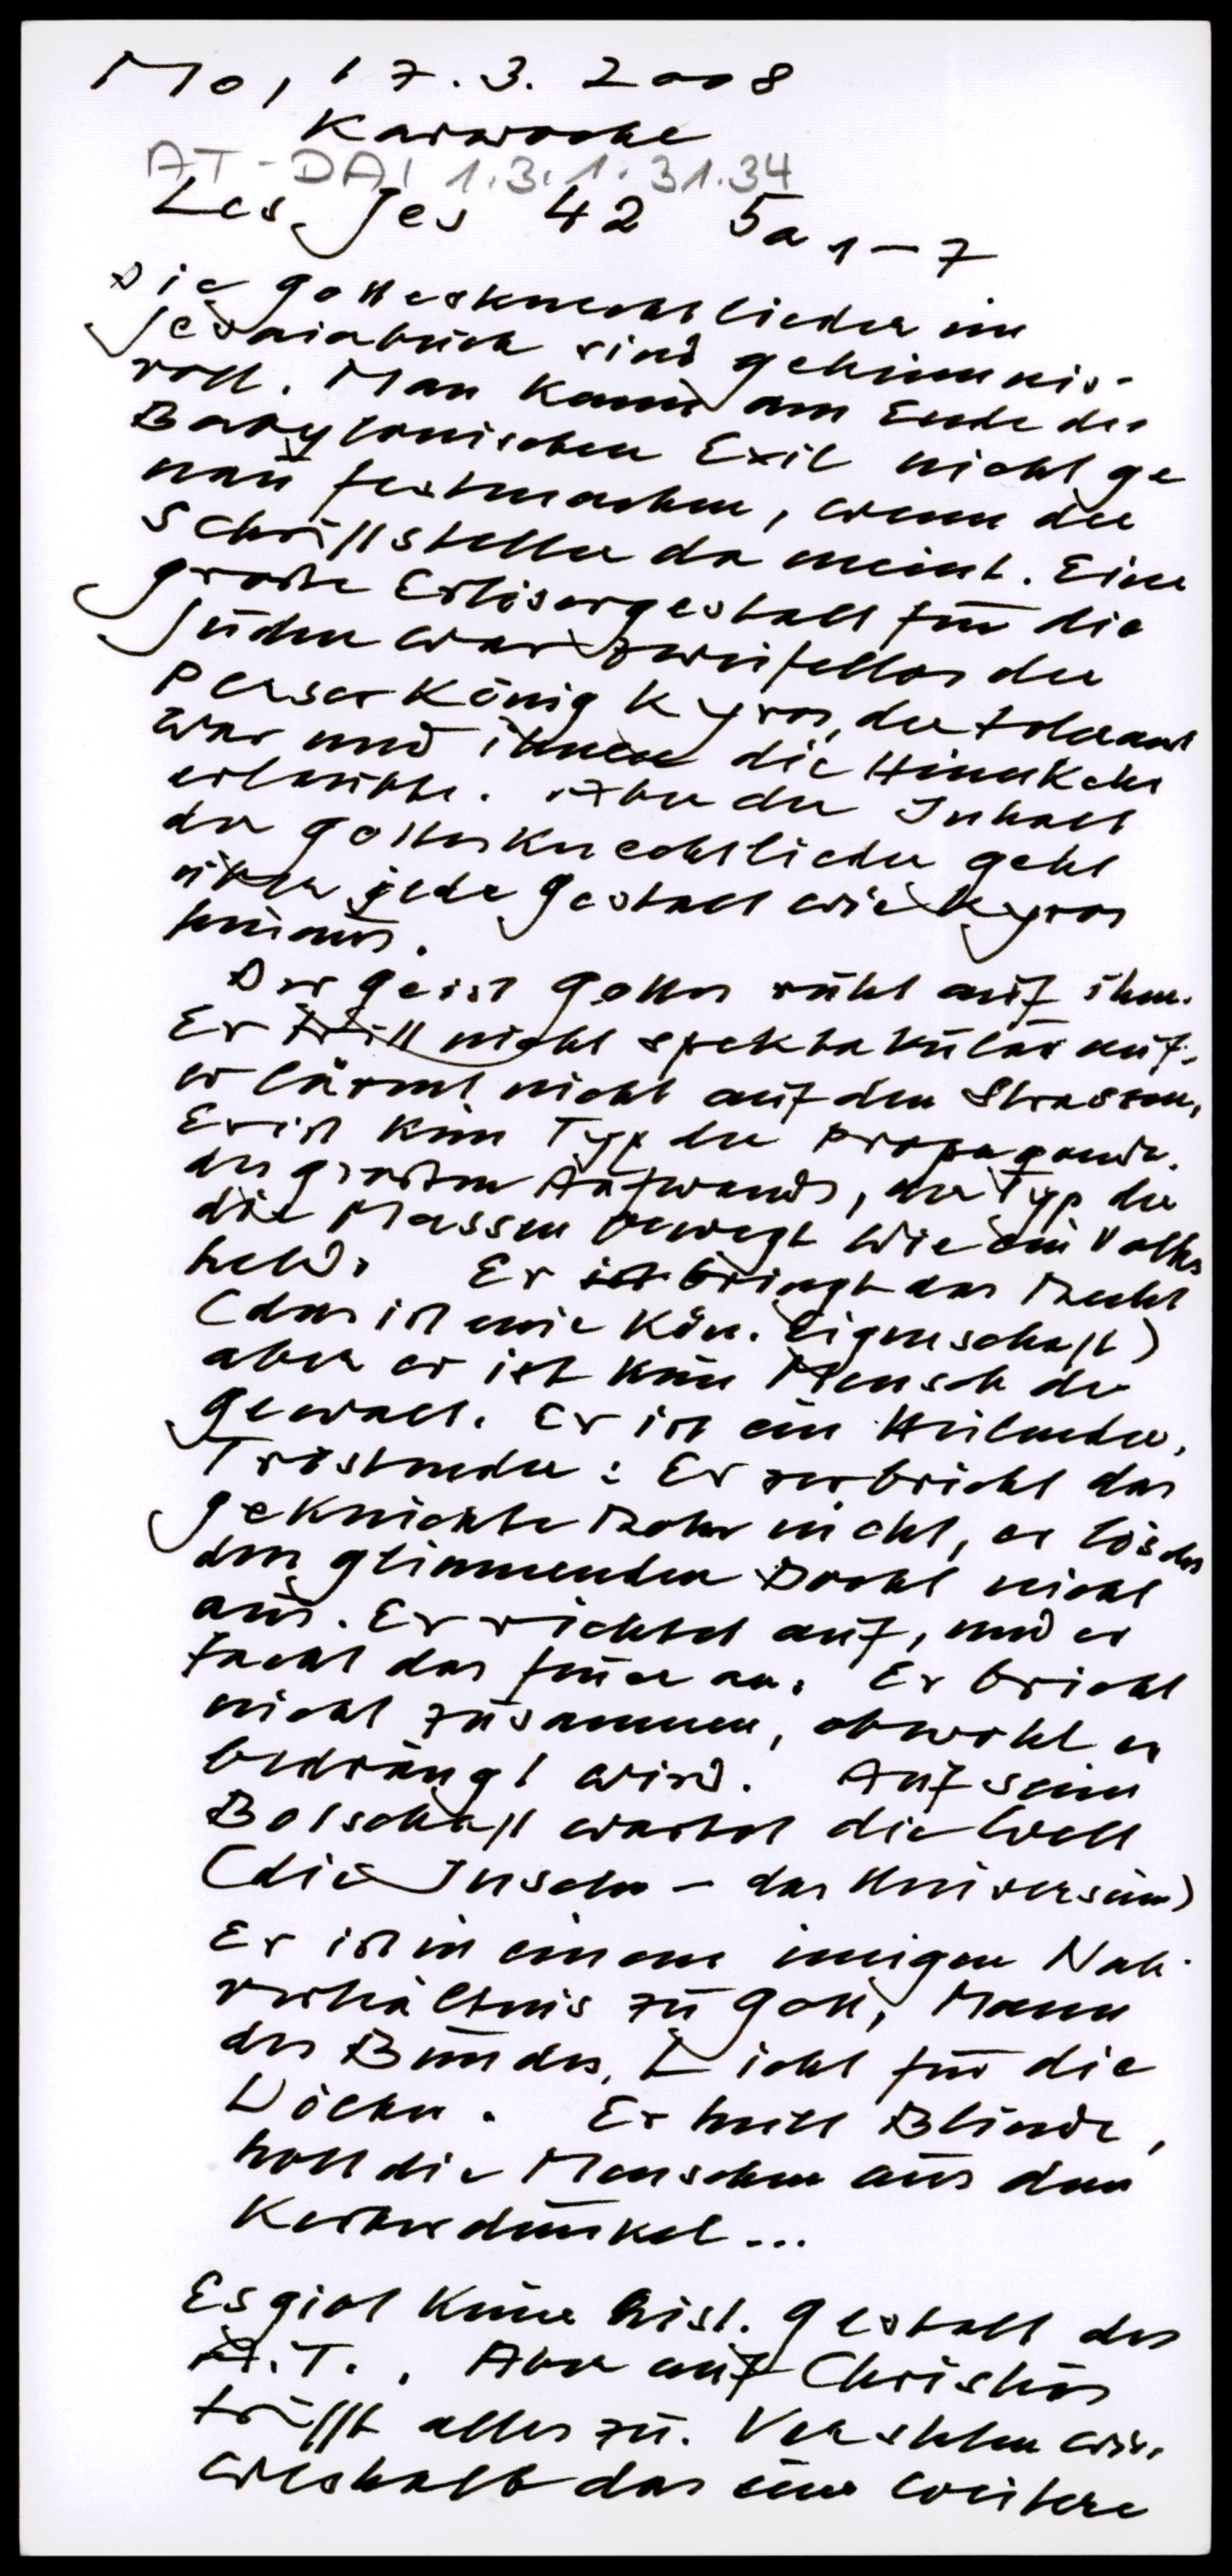 Mo, 17.3.2008
Karwoche
AT-DAI 1.3.1.31.34
Les. Jes 42 5a 1-7
Die Gottesknechtslieder im
Jesaiabuch sind geheimnis-
voll. Man kann am Ende des
Babylonischen Exil nicht ge
nau festmachen, wenn der
Schriftsteller da meint. Eine
große Erlösergestalt für die
Juden war zweifellos der
Perserkönig Kyros, der tolerant
war und ihnen die Heimkehr
erlaubte. Aber der Inhalt
der Gottesknechtslieder geht
über jede Gestalt wie Kyros
hinaus.
Der Geist Gottes ruht auf ihm.
Er tritt nicht spektakulär auf,
er lärmt nicht auf den Strassen,
Er ist kein Typ der Propaganda.
des großen Aufwands, der Typ der
die Massen bewegt wie ein Volks
held. Er ist bringt das Recht
(das ist eine Kön. Eigenschaft)
aber er ist kein Mensch der
Gewalt. Er ist ein Heilender,
Tröstender: Er zerbricht das
geknickte Rohr nicht, er löscht
den glimmenden Docht nicht
aus. Er richtet auf, und er
facht das Feuer an. Er bricht
nicht zusammen, obwohl er
bedrängt wird. Auf seine
Botschaft wartet die Welt
(die Inseln - das Universum)
Er ist in einem innigen Nah-
verhältnis zu Gott, Mann
des Bundes, Licht für die
Völker. Er heilt Blinde,
holt die Menschen aus dem
Kerkerdunkel...
Es gibt keine hist. Gestalt des
A.T.. Aber auf Christus
trifft alles zu. Verstehen wir,
weshalb das eine weitere